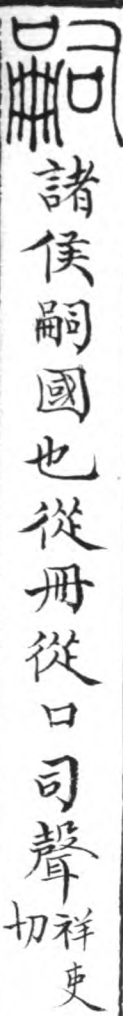 嗣
諸侯嗣國也從冊從口司聲祥吏切